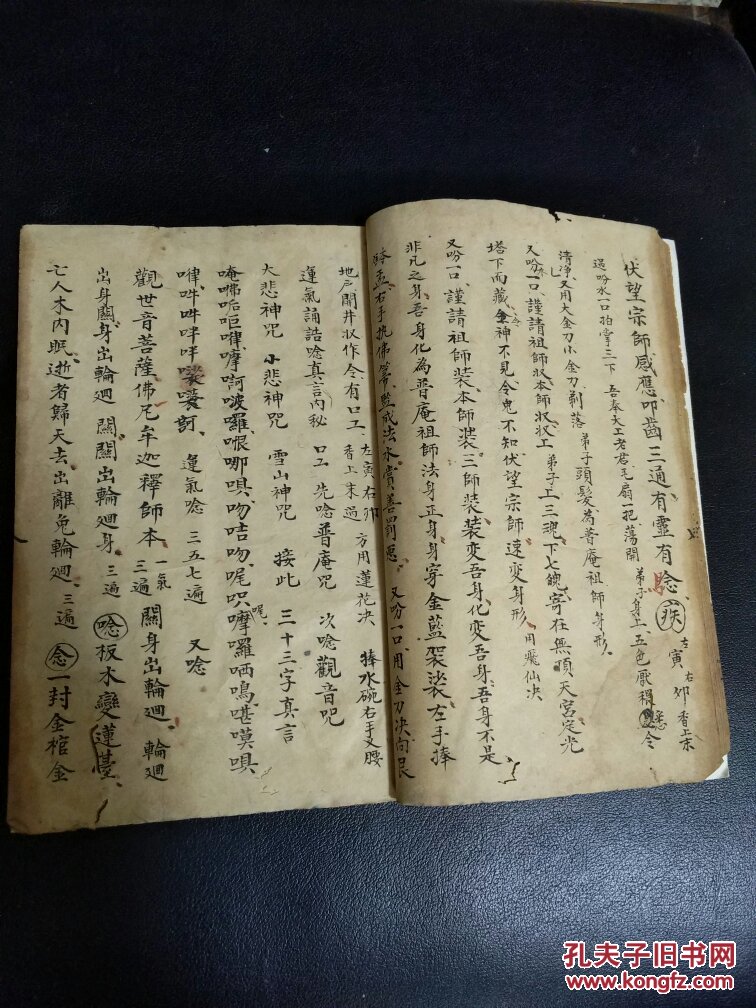 伏望宗師感應叩齒三通有靈有驗念 疾 左寅右卯香上末
過吩水一口拍掌三下 吾奉太上老君毛扇一把蕩開 弟子身上五色厭穢 令
清淨又用大金刀小金刀剃落 弟子頭髮為普庵祖師身形
又吩一口謹請祖師收本師收收工 弟子上三魂下七魄寄在無頂天宮定光
塔下而藏金神不見令鬼不知伏望宗師速變身形 用飛仙决
又吩一口謹請祖師装本師装三師装装变吾身化变吾身吾身不是
非凡之身吾身化為普庵祖師法身正身身穿金藍袈裟左手捧
砵盂右手执佛箒監戒法水賞善罰惡 又吩一口用金刀决向艮
地户開井収作令有口工 左寅右卯香上末過 方用蓮花决 捧水碗右手叉腰
運氣誦誥唸真言内秘 口工先唸普庵咒 次唸觀音咒
大悲神咒 小悲神咒 雪山神咒 接此 三十三字真言
唵嘛𠰷呾㘄摩訶啵羅哏哪唄吻咭吻呢呮摩囉哂鳴㗱嘆唄
㘄吽吽吽吽㘕㘕訶 運氣唸 三五七遍 又唸
觀世音菩薩佛尼牟迦釋師本 一氣三遍 關身出輪廻輪廻
出身關身出輪廻關關出輪廻身 三遍 唸 板木變蓮臺
亡人木内眠逝者歸天去出離免輪廻 三遍 念 一封金棺金
孔夫子旧书网
www.kongfz.com